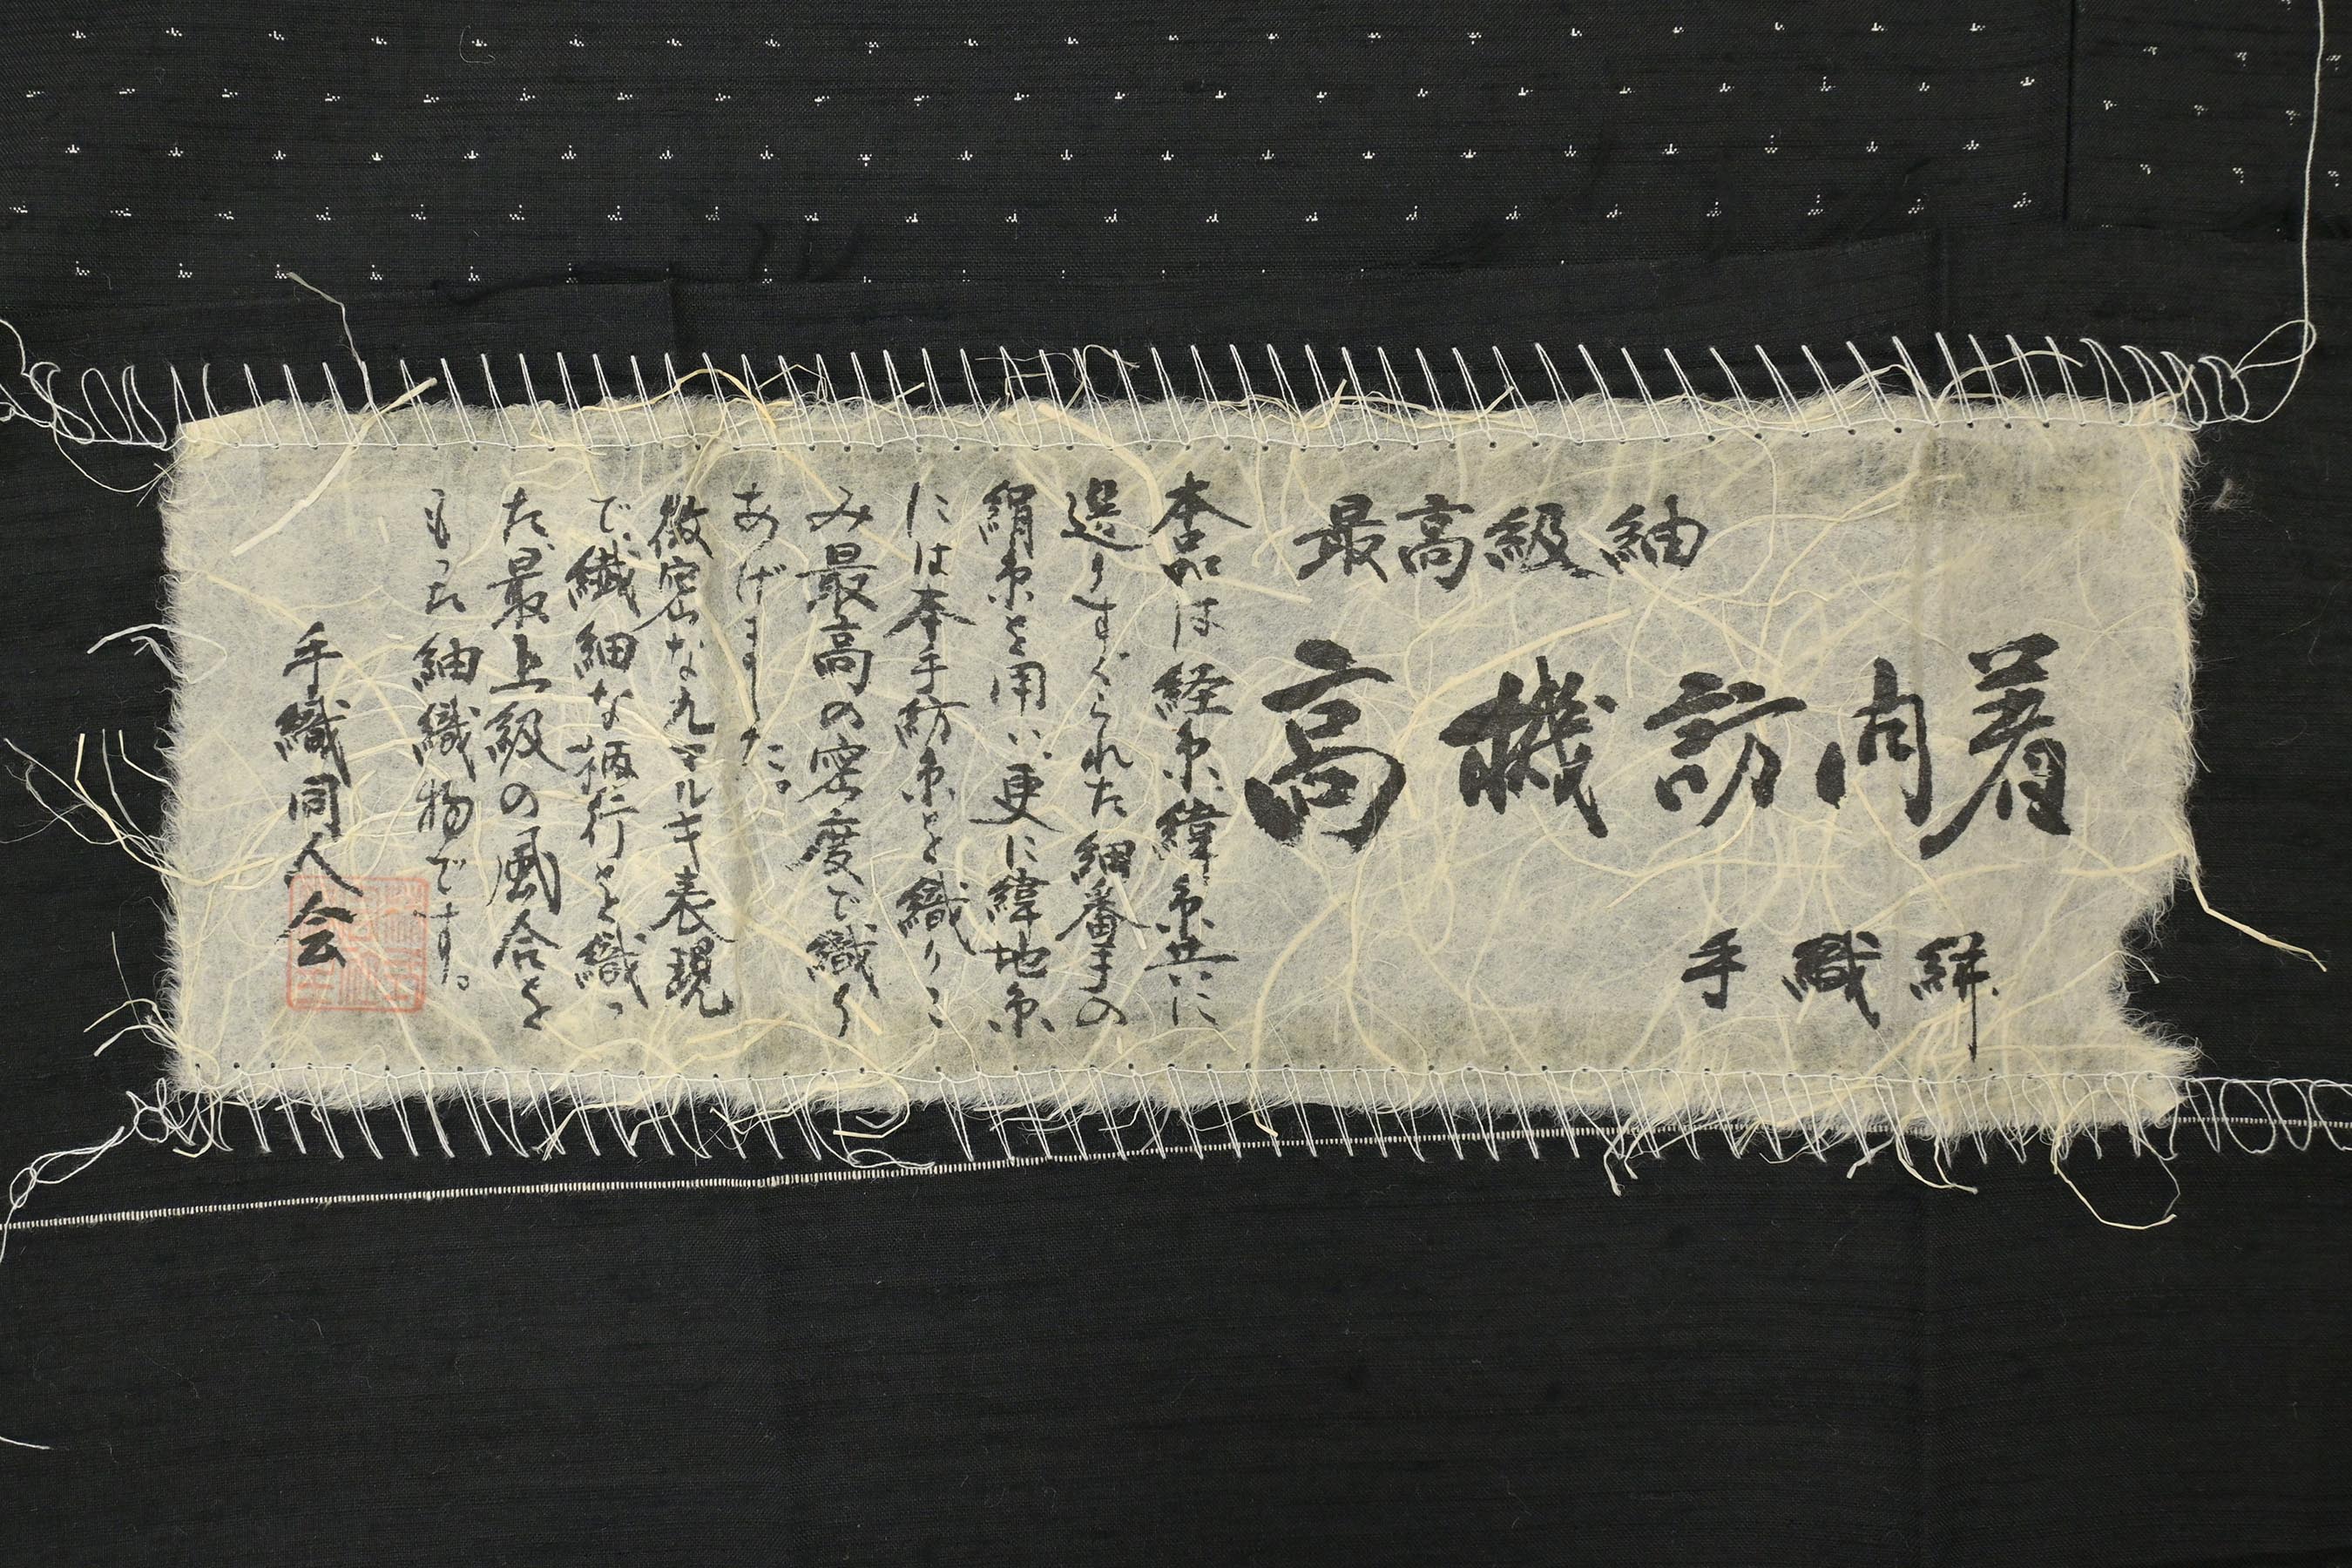 最高級紬
高機訪問着
手織絣
本品は経糸、緯糸共に
選りすぐられた細番手の
絹糸を用い、更に緯地糸
には本手紡糸を織りこ
み最高の密度で織り
あげました。
微密な九マルキ表現
で、繊細な柄行を織っ
た、最上級の風合を
もった紬織物です。
手織同人会